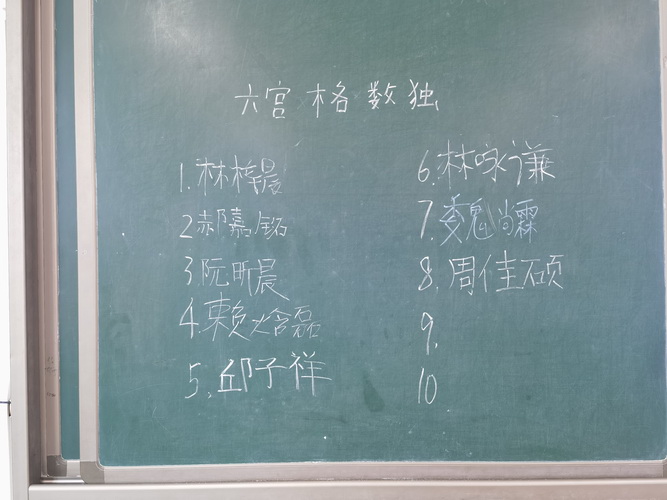 六宫格数独
1.林梓晨
2郝嘉铭
3.阮昕晨
4.赖焓磊
5.邱子祥
6.林咏谦
7.魏尚霖
8.周佳硕
9.
10